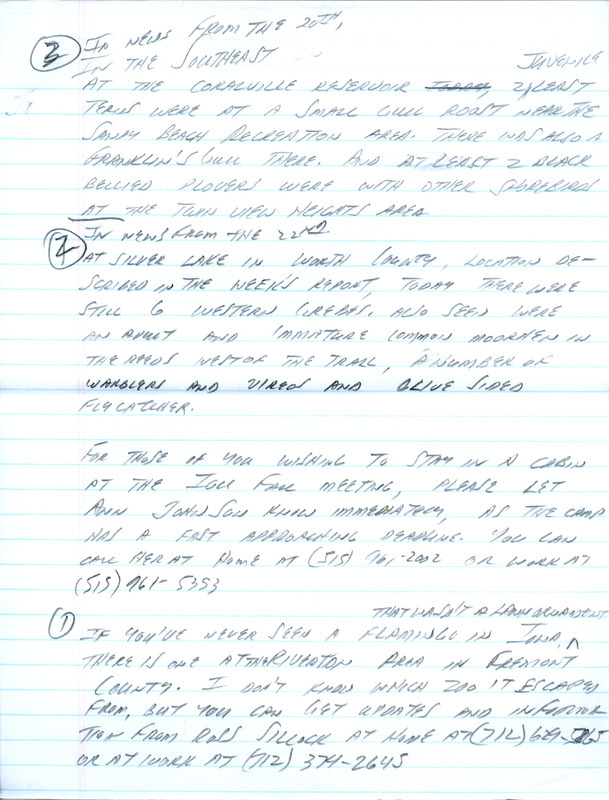 ③ IN NEWS FROM THE 20TH,
IN THE SOUTHEAST
JUVENILE
AT THE CORALVILLE RESERVOIR, 2 LEAST
TERNS WERE AT A SMALL GULL ROOST NEAR THE
SANDY BEACH RECREATION AREA. THERE WAS ALSO A
FRANKLIN'S GULL THERE. AND AT LEAST 2 BLACK
BELLIED PLOVERS WERE WITH OTHER SHOREBIRDS
AT THE TWIN VIEW HEIGHTS AREA
② IN NEWS FROM THE 22ND
AT SILVER LAKE IN WORTH COUNTY, LOCATION DE-
SCRIBED IN THE WEEK'S REPORT, TODAY THERE WERE
STILL 6 WESTERN GREBES. ALSO SEEN WERE
AN ADULT AND IMMATURE COMMON MOORHEN IN
THE REEDS WEST OF THE TRAIL, A NUMBER OF
WARBLERS AND VIREOS AND OLIVE SIDED
FLYCATCHER.
FOR THOSE OF YOU WISHING TO STAY IN A CABIN
AT THE IOU FALL MEETING, PLEASE LET
ANN JOHNSON KNOW IMMEDIATELY, AS THE CAMP
HAS A FAST APPROACHING DEADLINE. YOU CAN
CALL HER AT HOME AT (515) 961-2002 OR WORK AT
(515) 961-5353
THAT WASN'T A LAWN ORNAMENT
① IF YOU'VE NEVER SEEN A FLAMINGO IN IOWA,
THERE IS ONE AT THE RIVERTON AREA IN FREMONT
COUNTY. I DON'T KNOW WHICH ZOO IT ESCAPED
FROM, BUT YOU CAN GET UPDATES AND INFORMA
TION FROM ROSS SILCOCK AT HOME AT (712) 629-
OR AT WORK AT (712) 374-2645